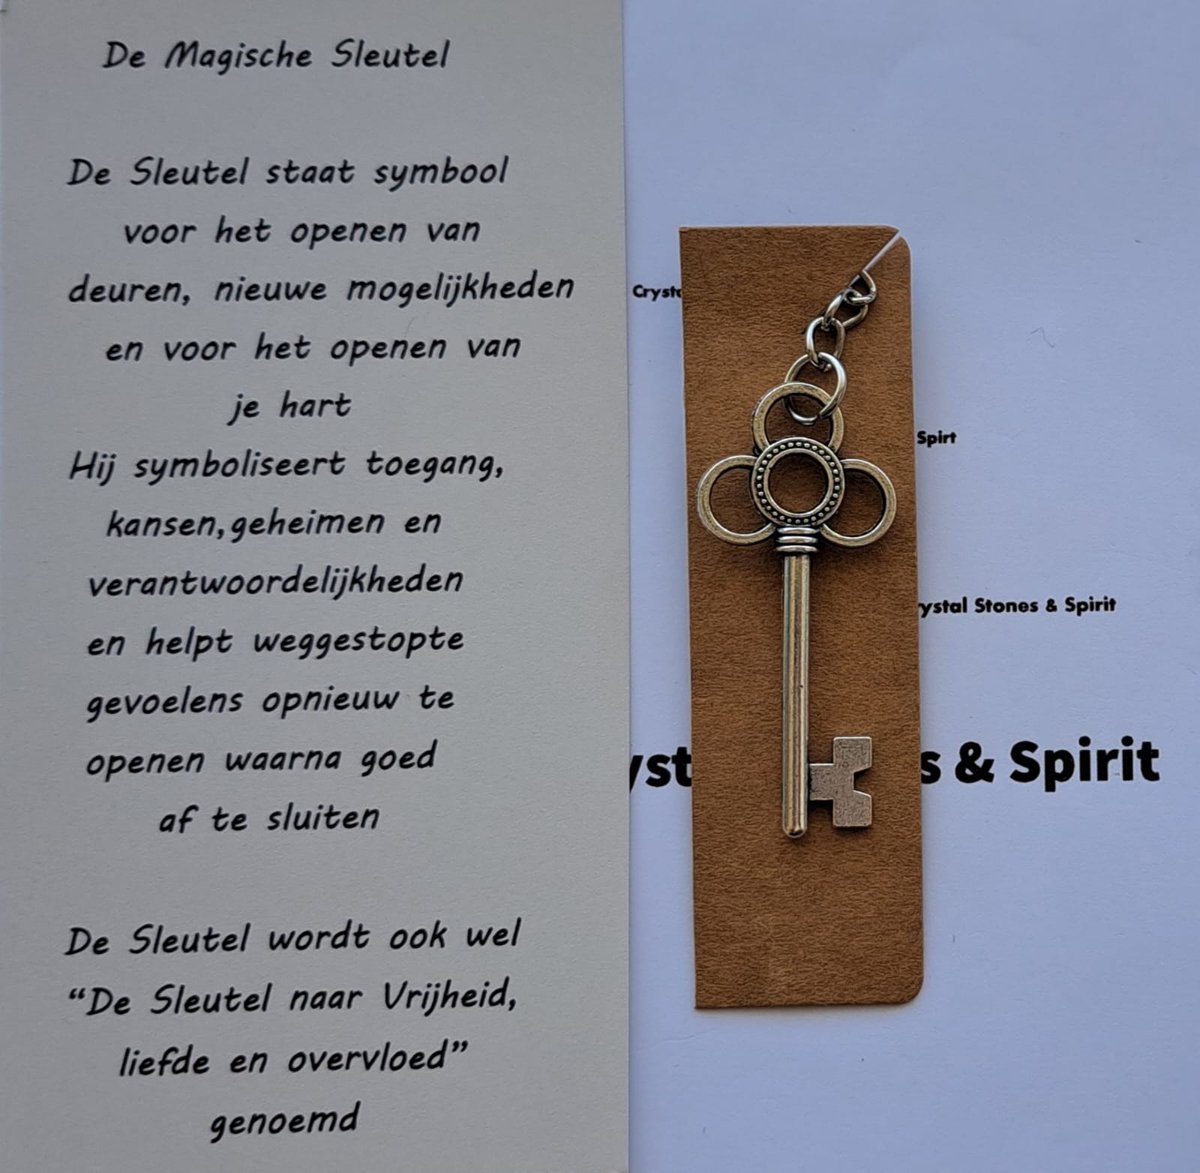 De Magische Sleutel
De Sleutel staat symbool
voor het openen van
deuren, nieuwe mogelijkheden
en voor het openen van
je hart
Hij symboliseert toegang,
kansen, geheimen en
verantwoordelijkheden
en helpt weggestopte
gevoelens opnieuw te
openen waarna goed
af te sluiten
De Sleutel wordt ook wel
“De Sleutel naar Vrijheid,
liefde en overvloed”
genoemd
Spirt
Stones & Spirit
& Spirit